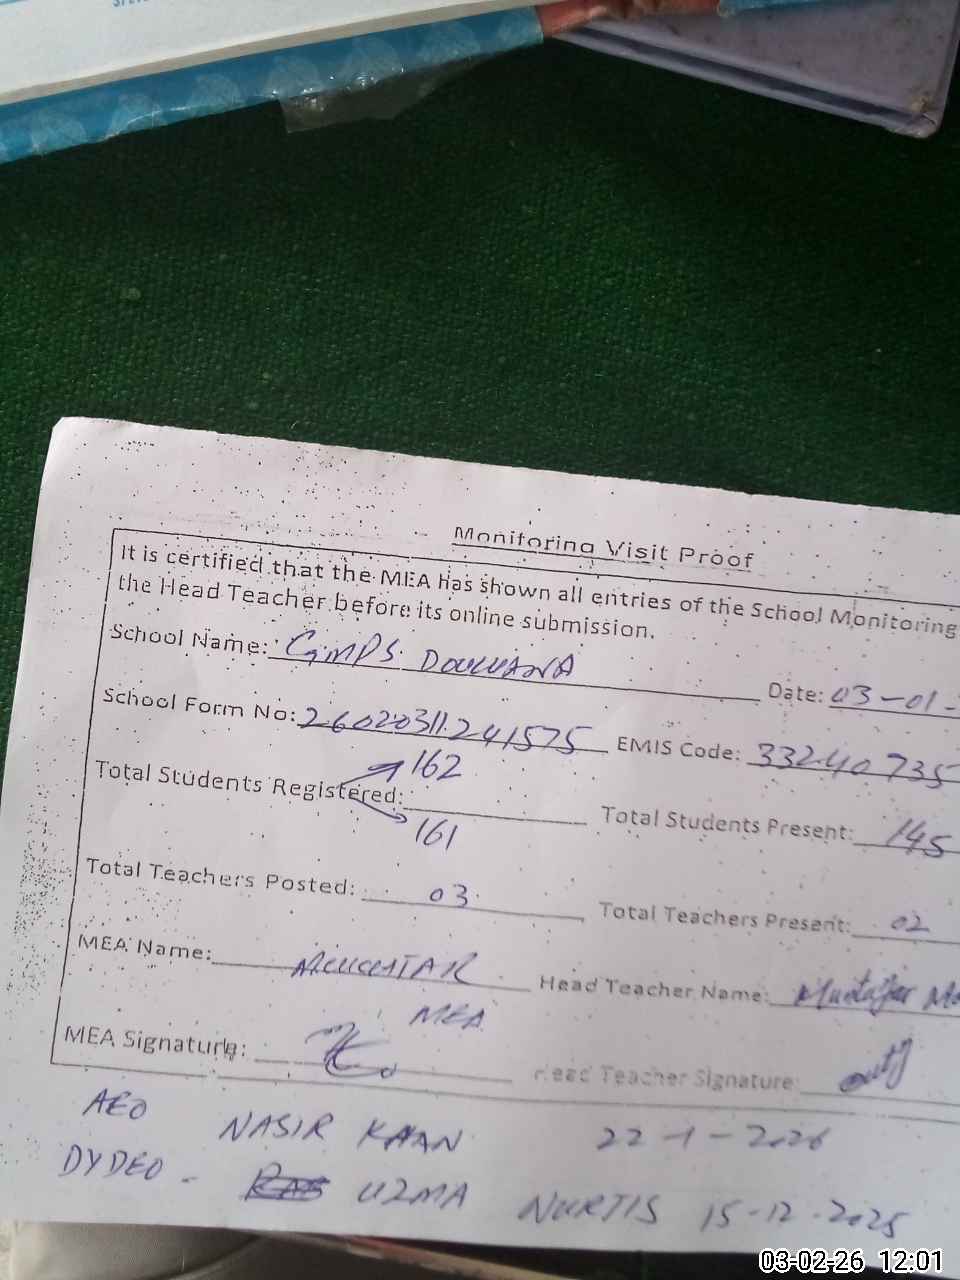 Monitoring Visit Proof
It is certified that the MEA has shown all entries of the School Monitoring
the Head Teacher before its online submission.
School Name: GMPS DOULUANA Date: 03-01-
School Form No: 26020311241575 EMIS Code: 33240735
162
Total Students Registered: Total Students Present: 145
161
Total Teachers Posted: 03 Total Teachers Present: 02
MEA Name: MUUHTAR Head Teacher Name:
MEA
MEA Signature: Head Teacher Signature:
AEO NASIR KHAN 22-1-2026
DYDEO - UZMA NURTIS 15-12-2025
03-02-26 12:01